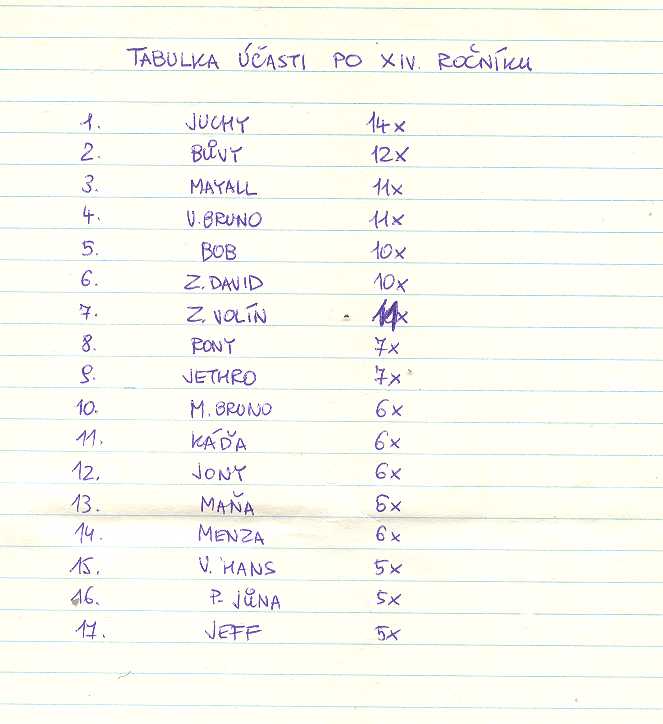 TABULKA ÚČASTI PO XIV. ROČNÍKU
1. JUCHY 14x
2. BŮVY 12x
3. MAYALL 11x
4. V. BRUNO 11x
5. BOB 10x
6. Z. DAVID 10x
7. Z. VOLÍN 11x
8. PONY 7x
9. JETHRO 7x
10. M. BRUNO 6x
11. KÁĎA 6x
12. JONY 6x
13. MAŇA 6x
14. MENZA 6x
15. V. HANS 5x
16. P. JŮNA 5x
17. JEFF 5x